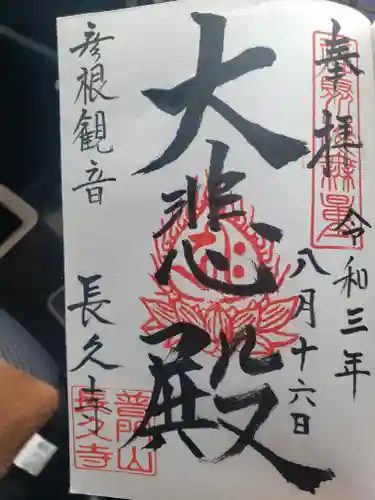 奉拝
令和三年
八月十六日
大悲殿
彦根観音
長久寺
普門山
長久寺